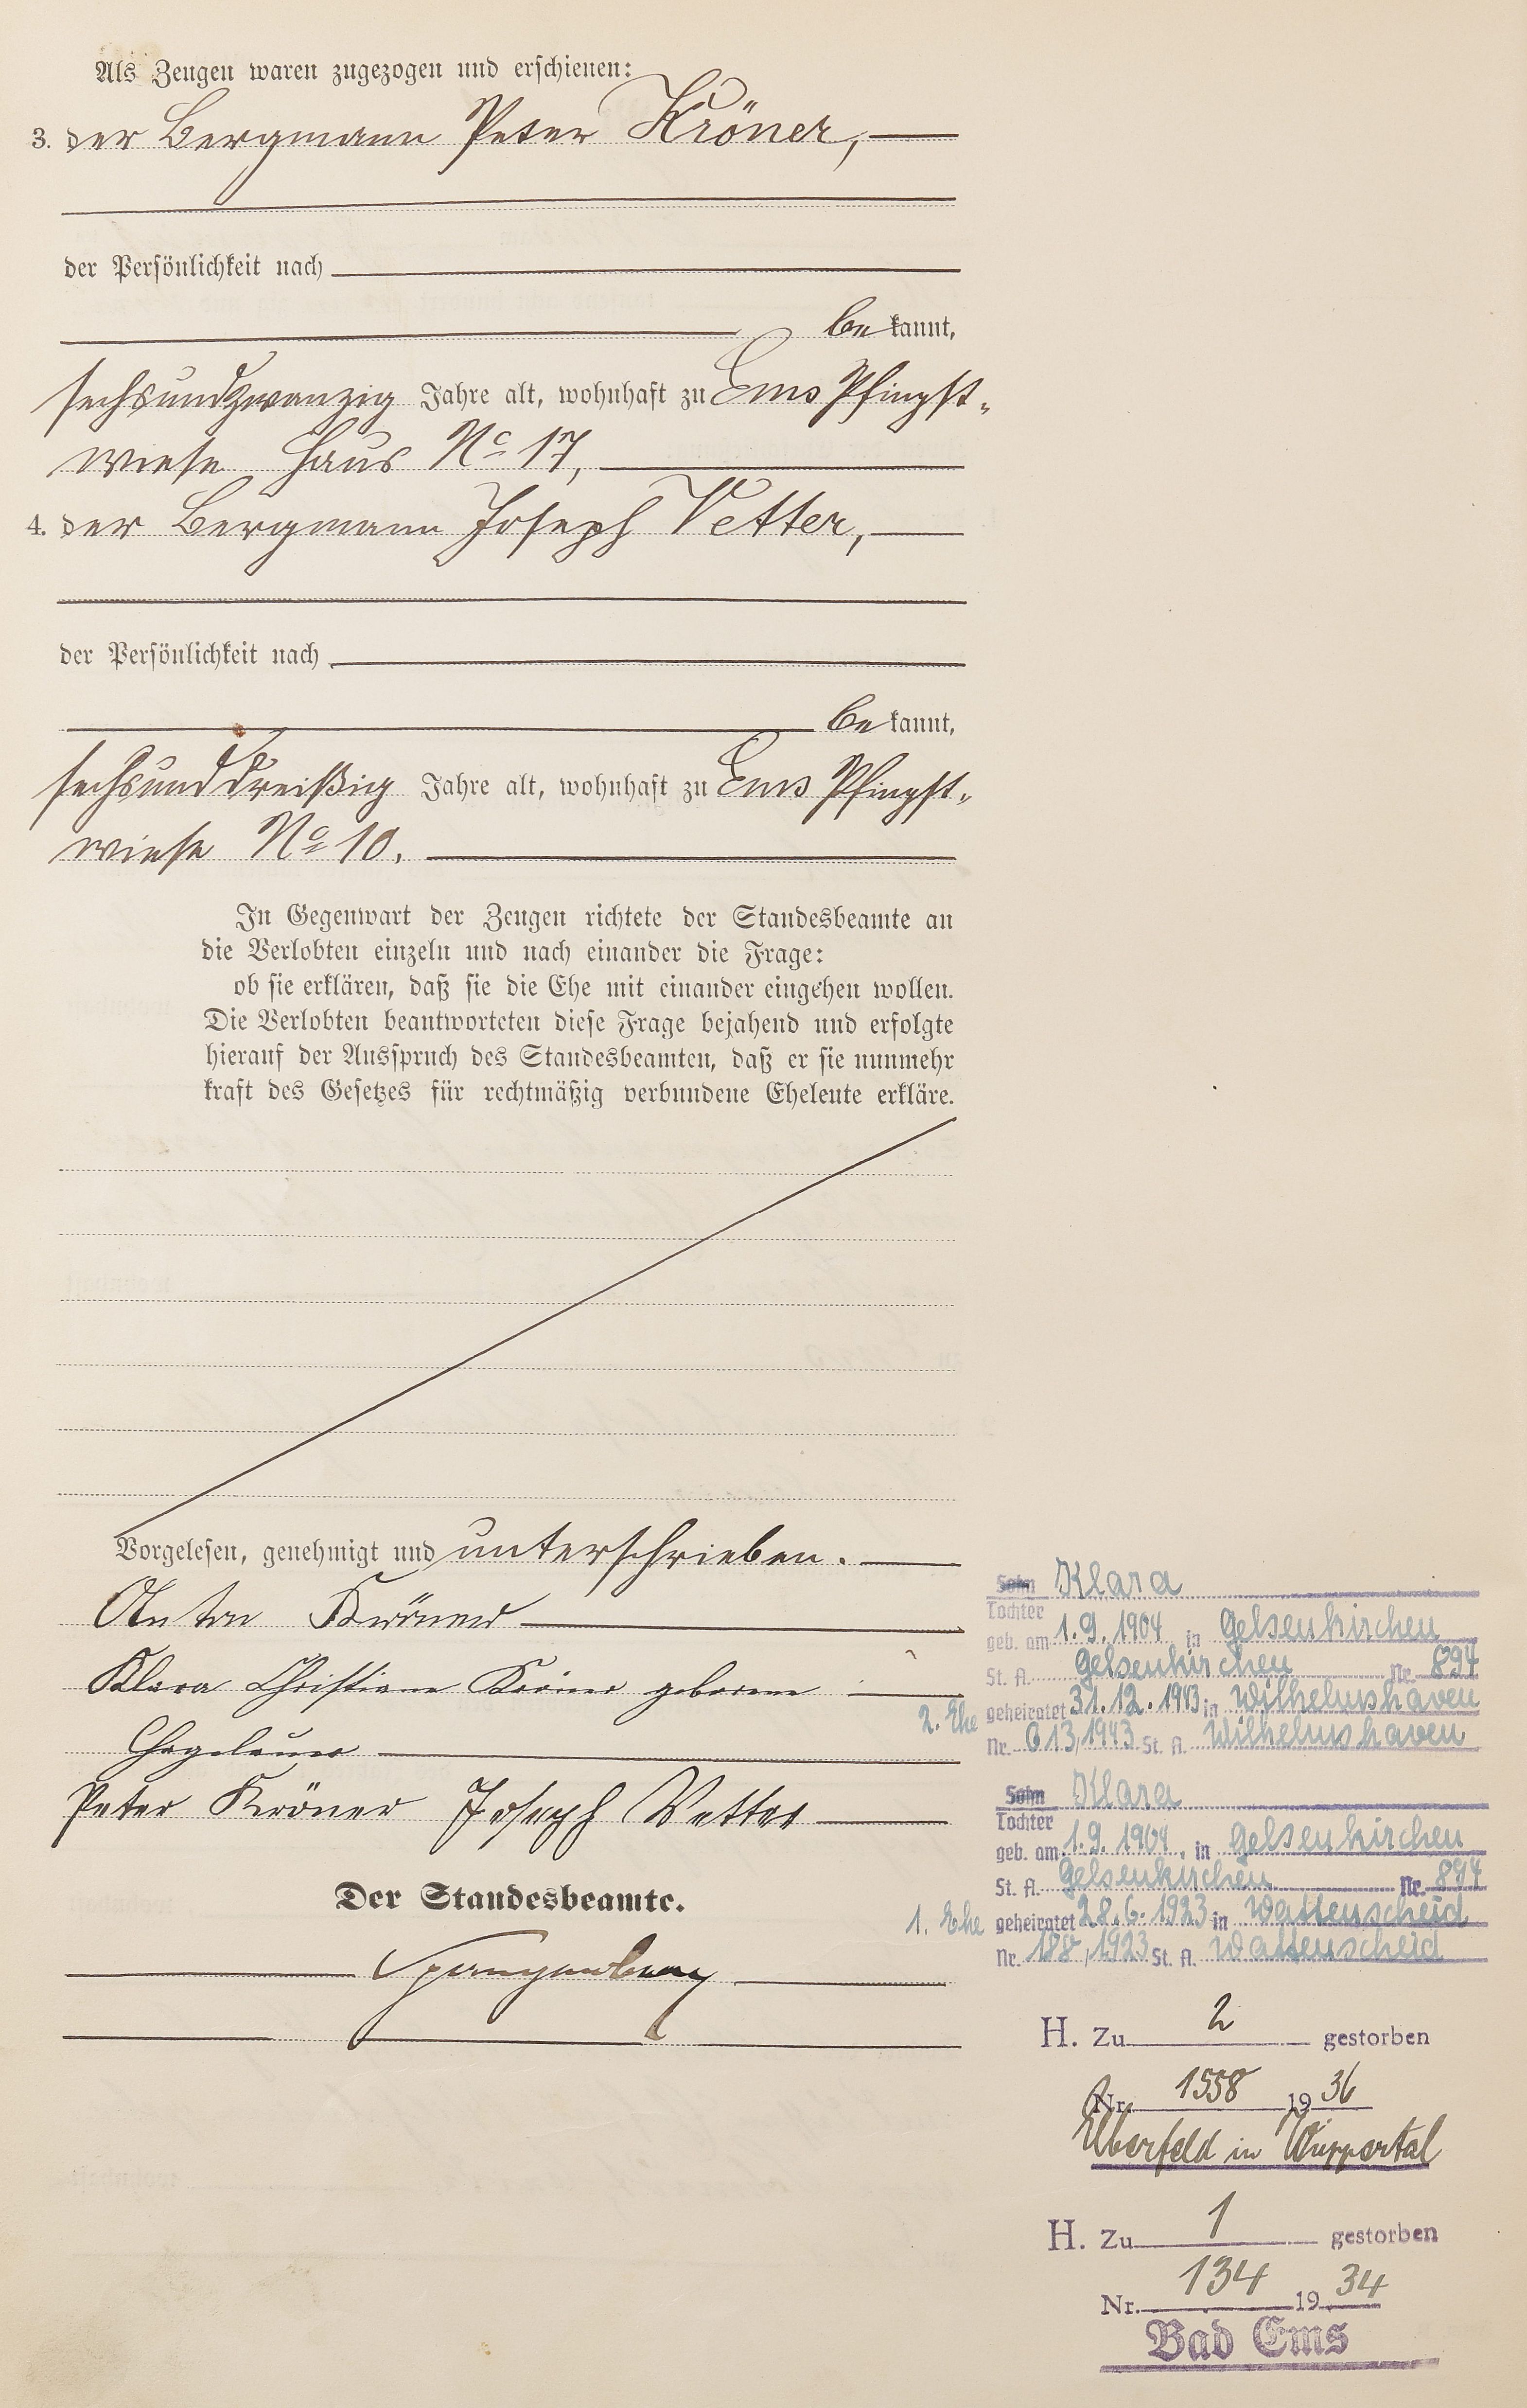 Als Zeugen waren zugezogen und erschienen:
3. der Bergmann Peter Kröner,
der Persönlichkeit nach
be kannt,
sechsundzwanzig Jahre alt, wohnhaft zu Ems Pfingst-
wiese Haus No 17,
4. der Bergmann Joseph Vetter,
der Persönlichkeit nach
be kannt,
sechsunddreißig Jahre alt, wohnhaft zu Ems Pfingst-
wiese No 10.
In Gegenwart der Zeugen richtete der Standesbeamte an
die Verlobten einzeln und nach einander die Frage:
ob sie erklären, daß sie die Ehe mit einander eingehen wollen.
Die Verlobten beantworteten diese Frage bejahend und erfolgte
hierauf der Ausspruch des Standesbeamten, daß er sie nunmehr
kraft des Gesetzes für rechtmäßig verbundene Eheleute erkläre.
Vorgelesen, genehmigt und unterschrieben.
Anton Kröner
Klara Christiane Kröner geborene
Peter Kröner Joseph Vetter
Der Standesbeamte.
Spangenberg
Sohn Klara
Tochter
geb. am 1.9.1904 in Gelsenkirchen
St. A. Gelsenkirchen Nr. 894
2. Ehe geheiratet 31.12.1943 in Wilhelmshaven
Nr. 613/1943 St. A. Wilhelmshaven
Sohn Klara
Tochter
geb. am 1.9.1904, in Gelsenkirchen
St. A. Gelsenkirchen Nr. 894
1. Ehe geheiratet 28.6.1923 in Wattenscheid
Nr. 188/1923 St. A. Wattenscheid
H. Zu 2 gestorben
Nr. 1558 19 36
Elberfeld in Wuppertal
H. Zu 1 gestorben
Nr. 134 19 34
Bad Ems